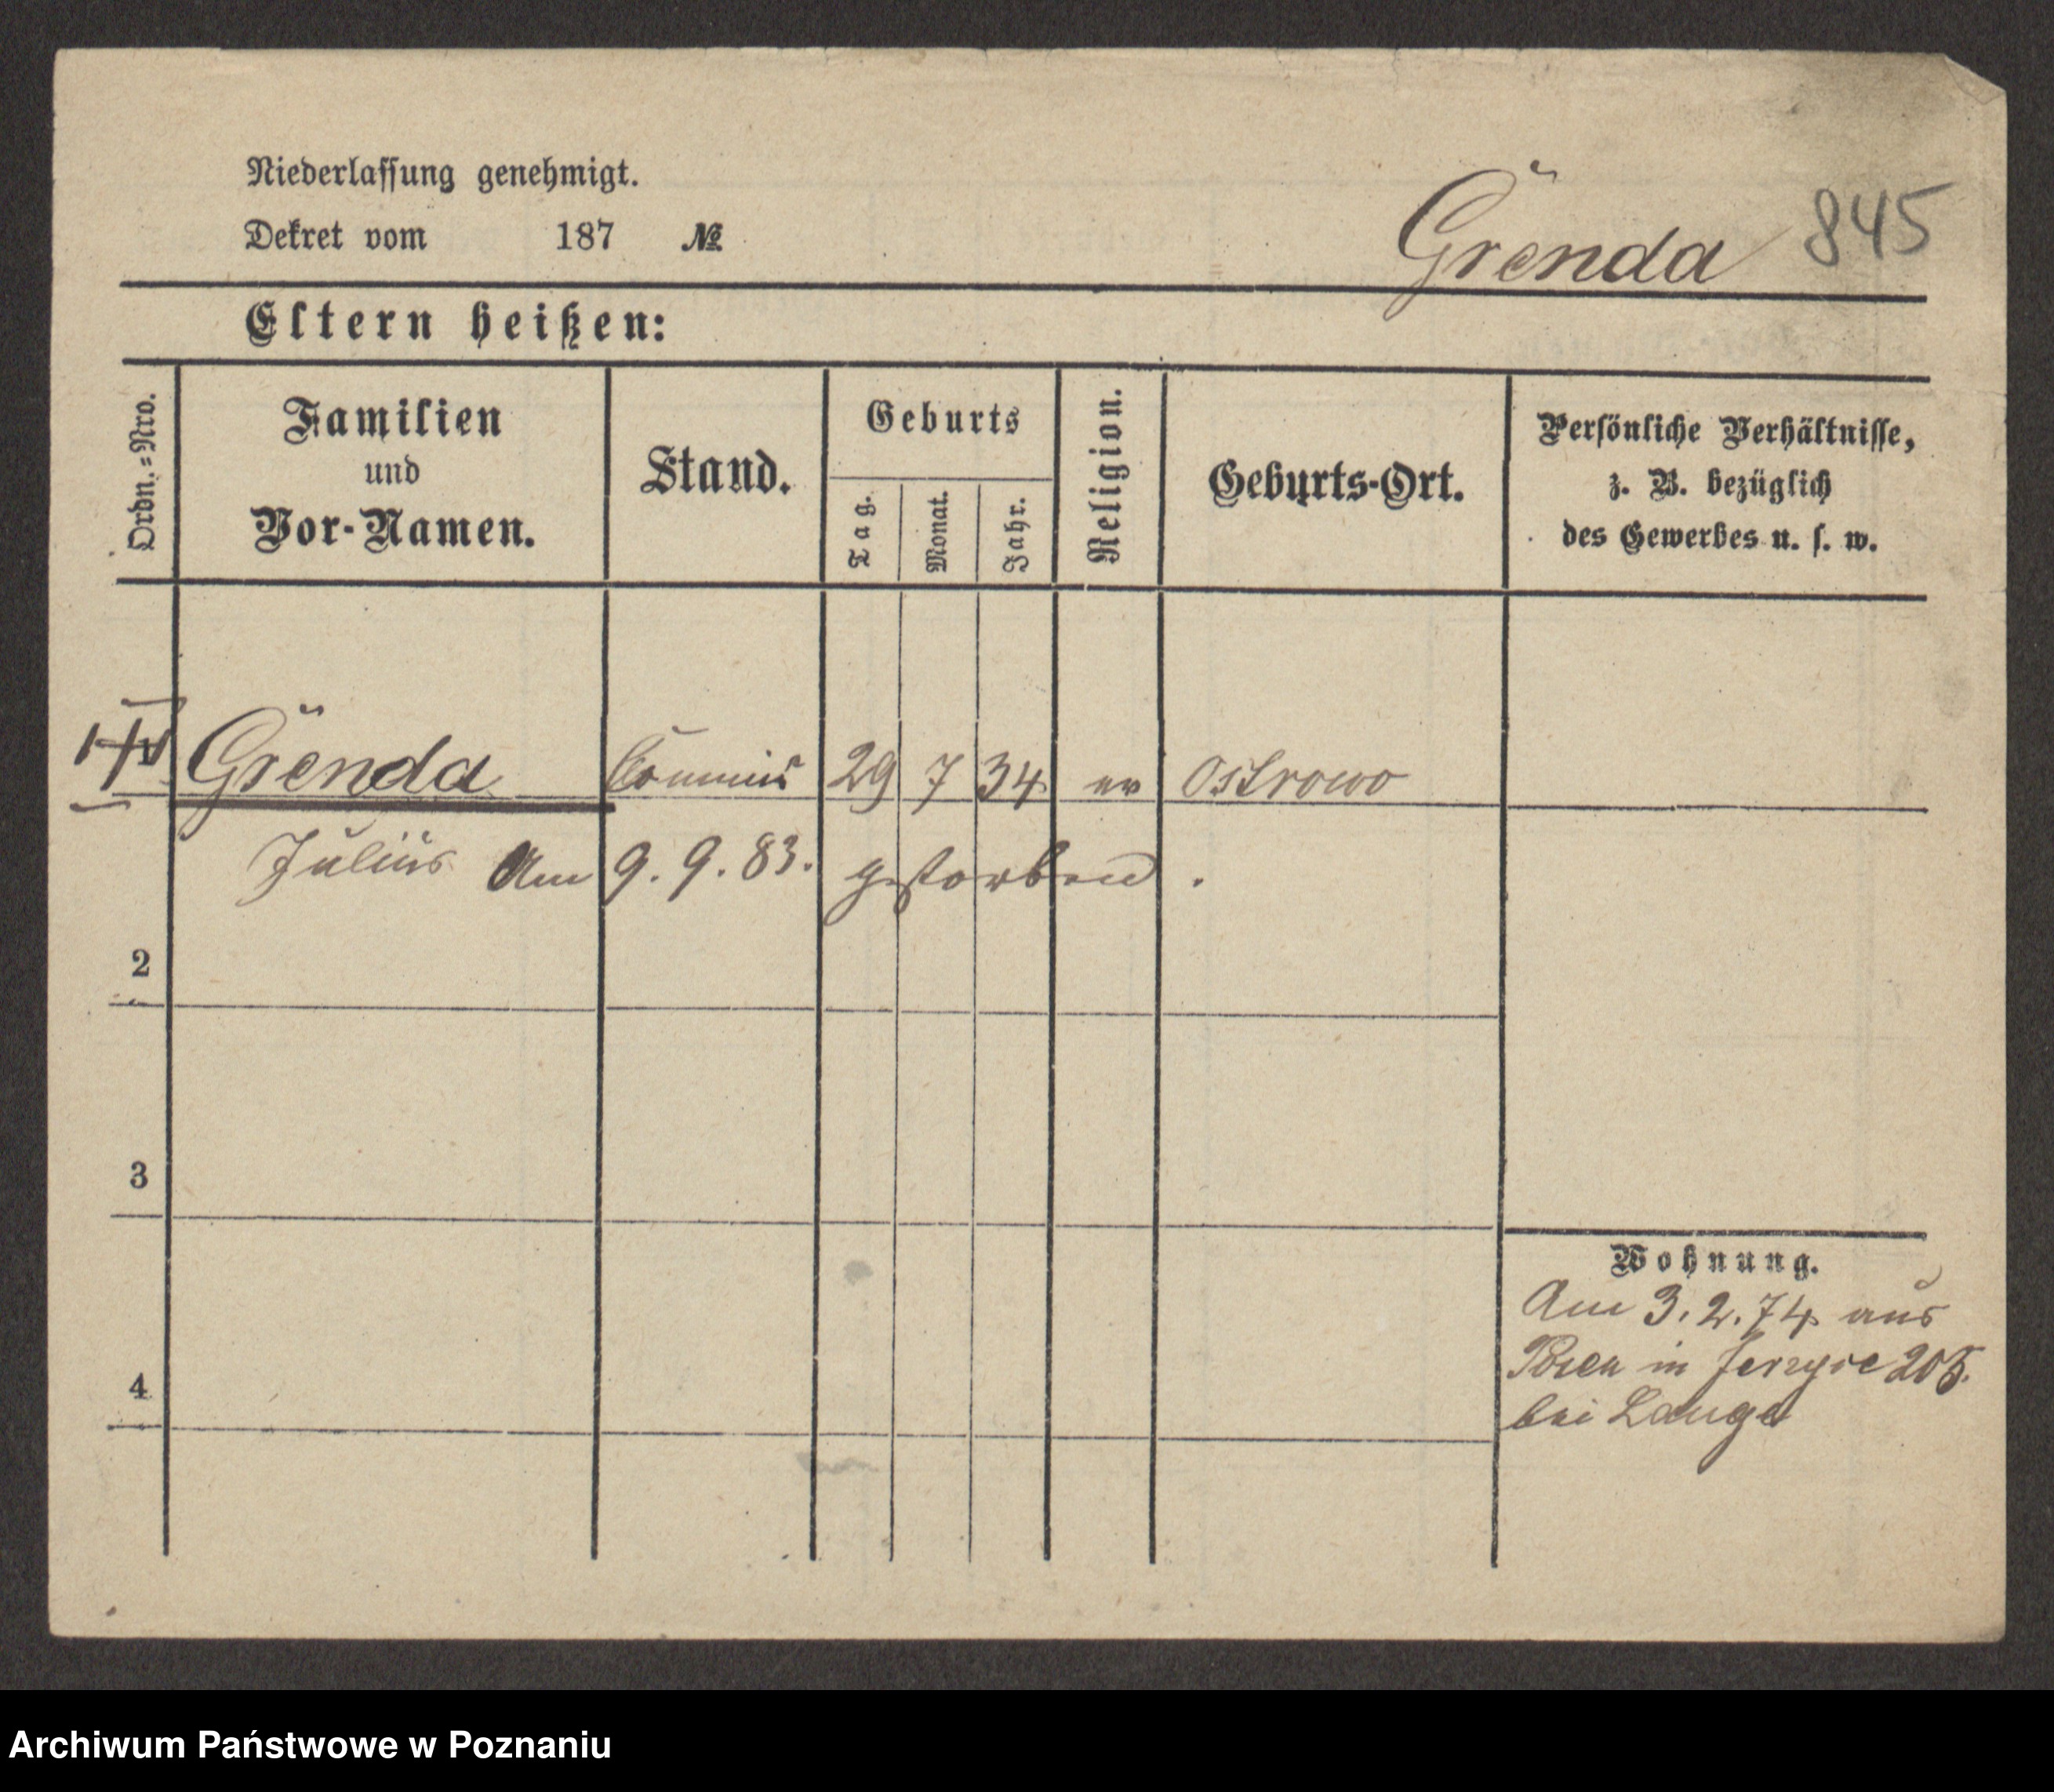 Niederlassung genehmigt.
Dekret vom 187 №
Grenda 845
Eltern heißen:
Ordn.=Nro.
Familien
und
Vor-Namen.
Stand.
Geburts
Tag.
Monat.
Jahr.
Religion.
Geburts-Ort.
Persönliche Verhältnisse,
z. B. bezüglich
des Gewerbes u. s. w.
Grenda Commis 29 7 34 ev Ostrowo
Julius Am 9. 9. 83. gestorben.
2
3
4
Wohnung.
Am 3. 2. 74 aus
Posen in Jerzyce 205.
bei Lange
Archiwum Państwowe w Poznaniu